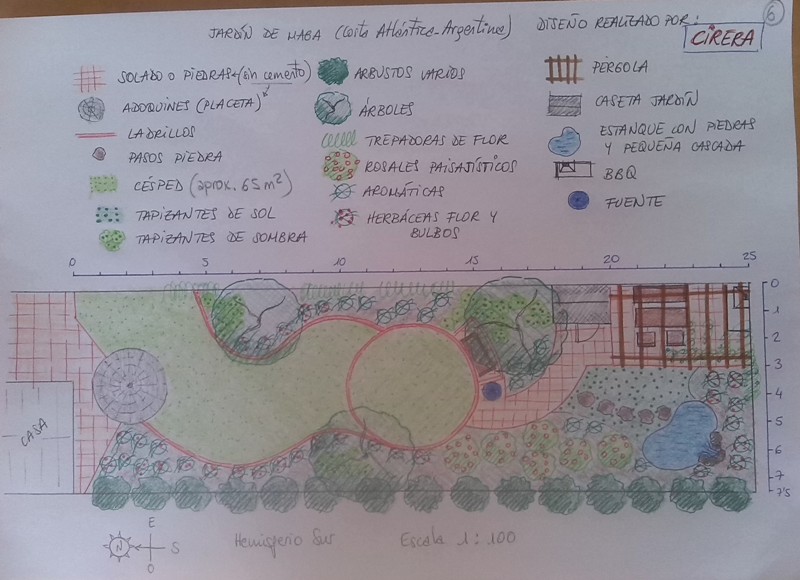 6
JARDÍN DE MAGA (Costa Atlántica-Argentina) DISEÑO REALIZADO POR:
CIRERA
SOLADO O PIEDRAS (sin cemento)
ADOQUINES (PLACETA)
LADRILLOS
PASOS PIEDRA
CÉSPED (aprox. 65 m²)
TAPIZANTES DE SOL
TAPIZANTES DE SOMBRA
ARBUSTOS VARIOS
ÁRBOLES
TREPADORAS DE FLOR
ROSALES PAISAJÍSTICOS
AROMÁTICAS
HERBÁCEAS FLOR Y
BULBOS
PÉRGOLA
CASETA JARDÍN
ESTANQUE CON PIEDRAS
Y PEQUEÑA CASCADA
BBQ
FUENTE
0 5 10 15 20 25
0
1
2
3
4
5
6
7
7'5
CASA
E
N S
O
Hemisferio Sur Escala 1:100